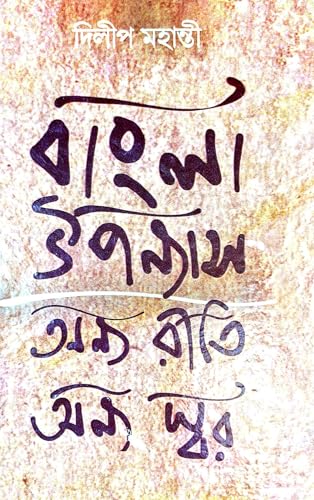 দিলীপ মহান্তী
বাংলা
উপন্যাস
অন্য রীতি
অন্য স্বর